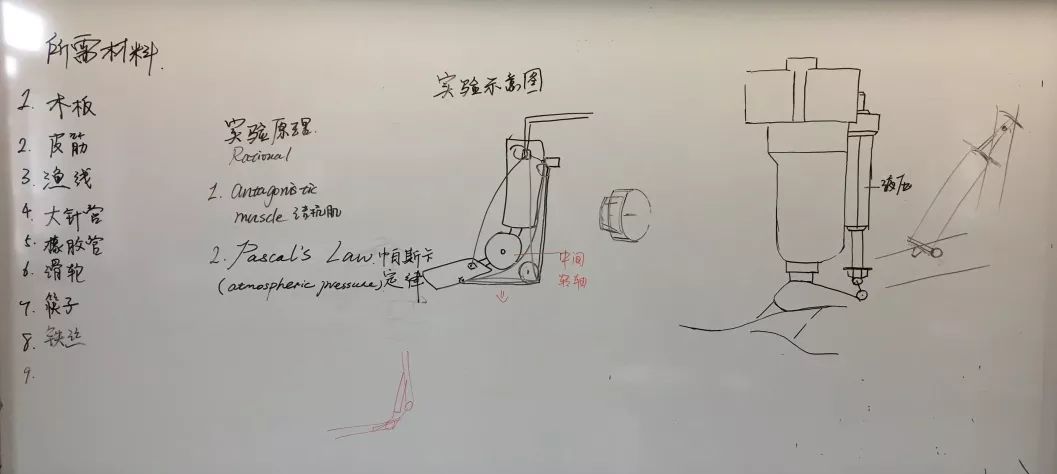 所需材料.
1. 木板
2. 皮筋
3. 渔线
4. 大针管
5. 橡胶管
6. 滑轮
7. 筷子
8. 铁丝
9.
实验原理.
Rational
1. antagonistic
muscle 拮抗肌
2. Pascal's Law. 帕斯卡
(atmospheric pressure) 定律
实验示意图
中间
转轴
液压